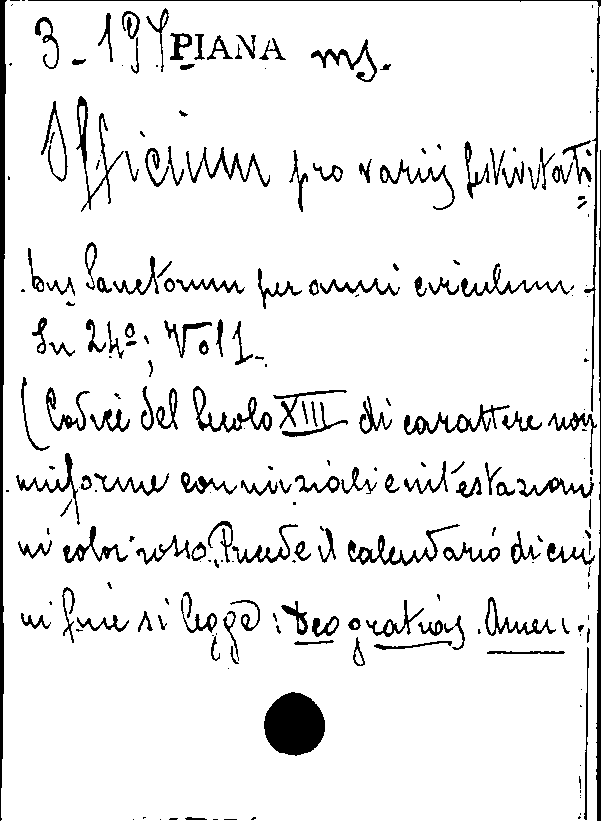 3-19 PIANA ms.
Officium pro variis festivitati=
bus Sanctorum per anni circulum-
In 24º; Vol 1.
(Codice del secolo XIII di carattere non
uniforme con iniziali e intestazioni
in color rosso. Precede il calendario di cui
in fine si legge: Deo gratias. Amen.